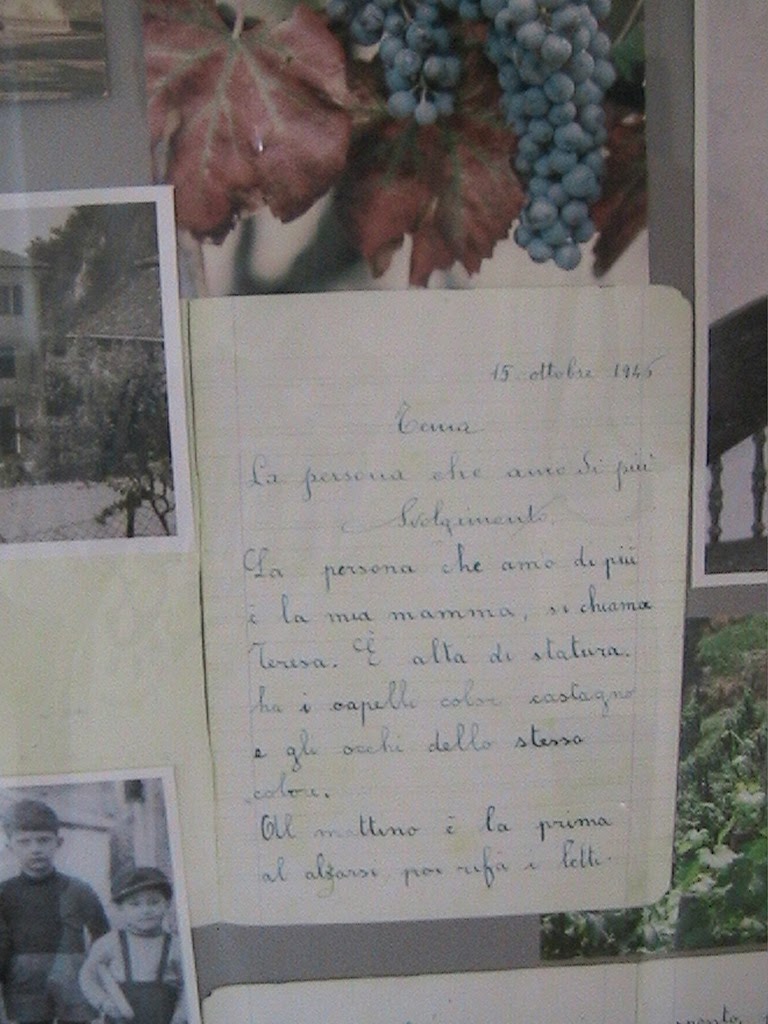 15 ottobre 1945
Tema
La persona che amo di più
Svolgimento.
La persona che amo di più
è la mia mamma, si chiama
Teresa. È alta di statura.
ha i capelli color castagno
e gli occhi dello stesso
colore.
Al mattino è la prima
al alzarsi poi rifà i letti.